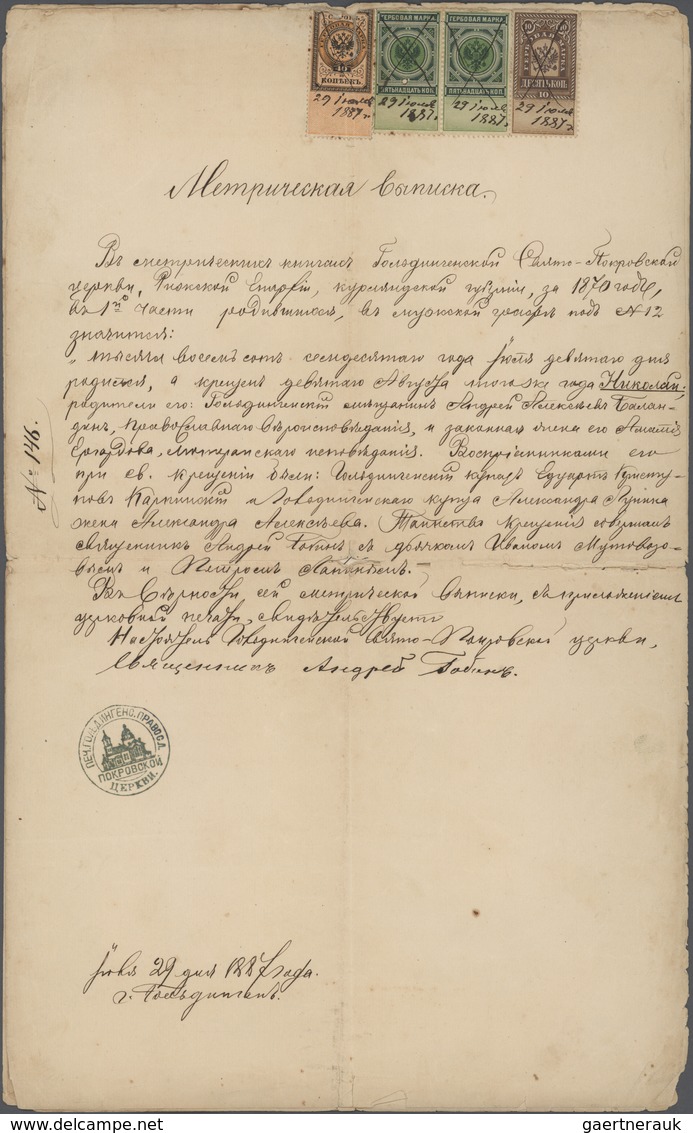 ГЕРБОВАЯ МАРКА ГЕРБОВАЯ МАРКА
10 10
КОПѢЕКЪ. ПЯТЬНАДЦАТЬ КОП. ПЯТЬНАДЦАТЬ КОП. ДЕСЯТЬ КОП.
10
29 Іюля 29 Іюля 29 Іюля 29 Іюля
1887 г. 1887. 1887. 1887 г.
Метрическая выписка.
Въ метрическихъ книгахъ Гольдингенской Свято-Покровской
церкви, Рижской Епархіи, Курляндской губерніи, за 1870 годъ,
въ 1й части родившихся, въ мужской графѣ подъ №12
значится:
„тысяча восемсотъ семидесятаго года Іюля девятаго дня
родился, а крещенъ девятаго Августа того же года Николай;
родители его: Гольдингенскій мѣщанинъ Андрей Алексѣевъ Балан-
динъ, православнаго вѣроисповѣданія, и законная жена его
лютеранскаго исповѣданія. Воспріемниками его
при св. крещеніи были: Гольдингенскій купецъ Едуардъ Кристу-
повъ и Гольдингенскаго купца Александра
жена Александра Алексѣева. Таинство крещенія совершалъ
священникъ Андрей съ дьячкомъ Иваномъ
и Петромъ
Въ вѣрности сей метрической выписки, съ приложеніемъ
церковной печати, свидѣтельствуетъ
Настоятель Гольдингенской Свято-Покровской церкви,
Священникъ Андрей
№ 146.
ПЕЧ. ГОЛЬДИНГЕНС. ПРАВОСЛ.
ПОКРОВСКОЙ
ЦЕРКВИ.
Іюля 29 дня 1887 года.
г. Гольдингенъ.
gaertnerauk